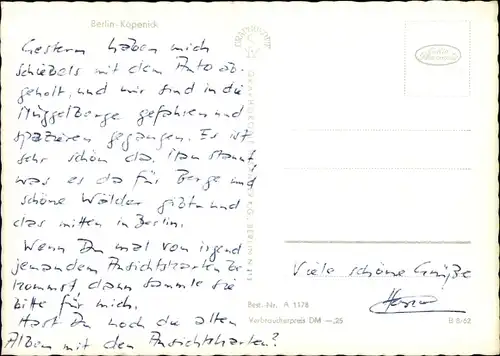 Berlin-Köpenick
Gestern haben mich
Schiebels mit dem Auto ab-
geholt, und wir sind in die
Müggelberge gefahren und
spazieren gegangen. Es ist
sehr schön da. Man staunt,
was es da für Berge und
schöne Wälder gibt und
das mitten in Berlin.
Wenn Du mal von irgend
jemandem Ansichtskarten be
kommst, dann sammle sie
bitte für mich.
Hast Du noch die alten
Alben mit den Ansichtskarten?
Viele schöne Grüße
Best.-Nr. A 1178
Verbraucherpreis DM —,25
B 8/62